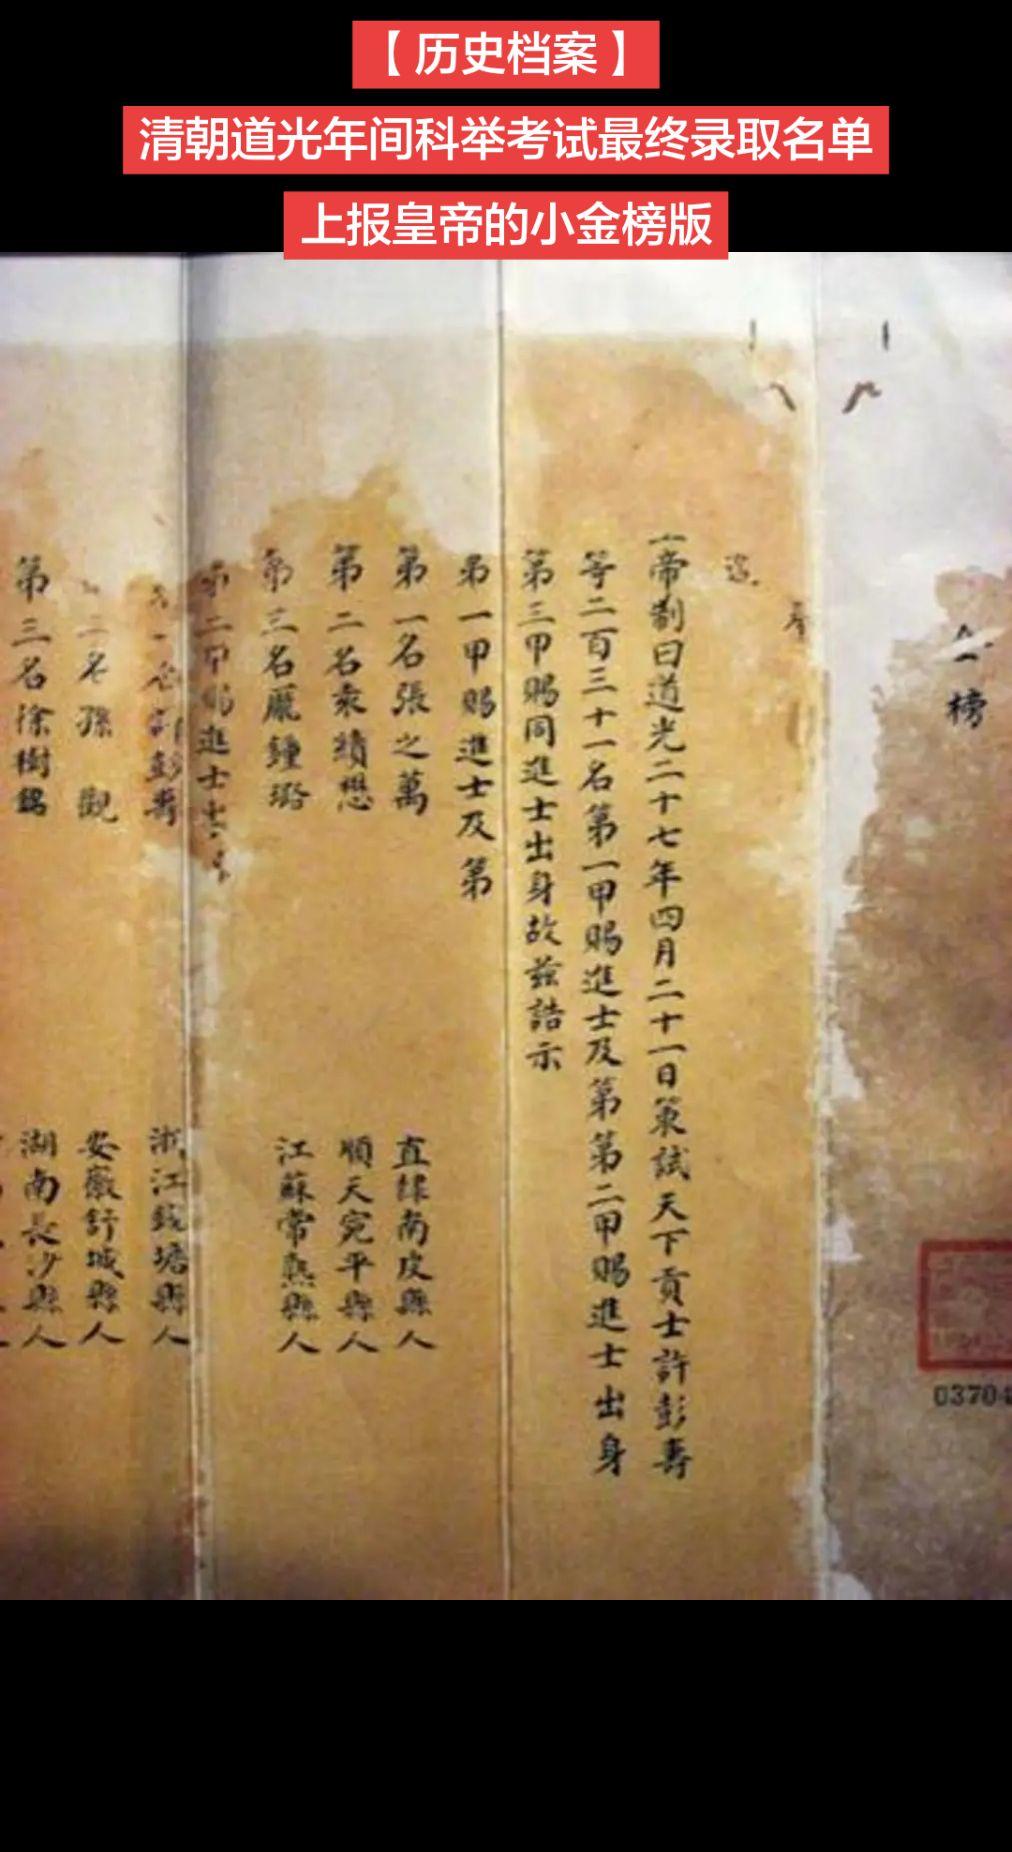 【历史档案】
清朝道光年间科举考试最终录取名单
上报皇帝的小金榜版
榜
帝制曰道光二十七年四月二十一日策試天下貢士許彭壽
等二百三十一名第一甲賜進士及第第二甲賜進士出身
第三甲賜同進士出身故茲誥示
第一甲賜進士及第
第一名張之萬 直隸南皮縣人
第二名袁績懋 順天宛平縣人
第三名龐鍾璐 江蘇常熟縣人
第二甲賜進士出身
許彭壽 浙江錢塘縣人
二名孫觀 安徽舒城縣人
第三名徐樹銘 湖南長沙縣人
0370